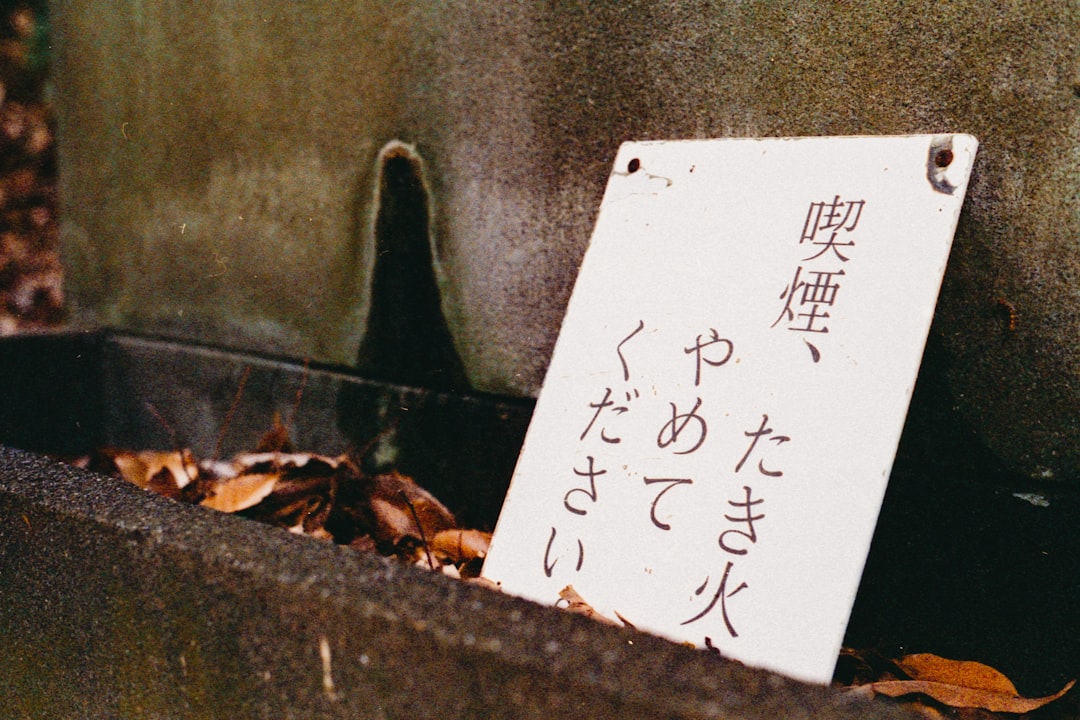 喫煙、たき火
やめて
ください。